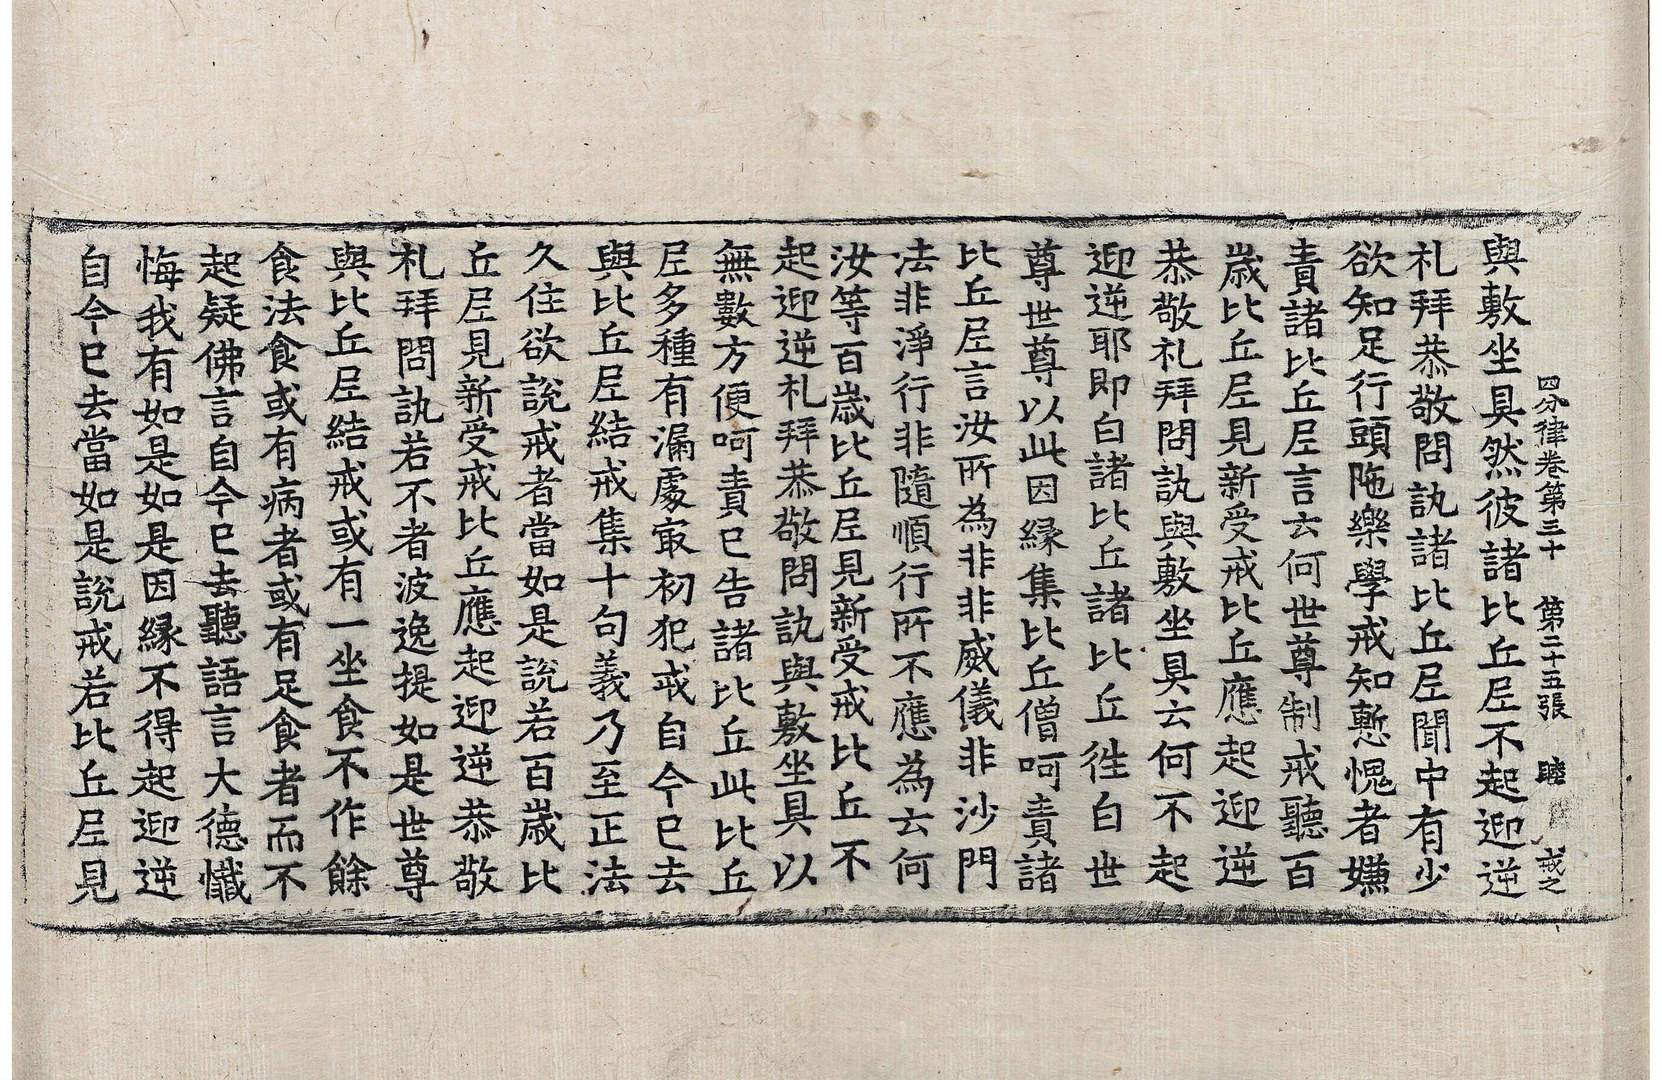 四分律卷第三十　第二十五張　睦　戒之
與敷坐具然彼諸比丘尼不起迎逆
礼拜恭敬問訊諸比丘尼聞中有少
欲知足行頭陁樂學戒知慙愧者嫌
責諸比丘尼言云何世尊制戒聽百
歲比丘尼見新受戒比丘應起迎逆
恭敬礼拜問訊與敷坐具云何不起
迎逆耶即白諸比丘諸比丘徃白世
尊世尊以此因緣集比丘僧呵責諸
比丘尼言汝所為非非威儀非沙門
法非淨行非隨順行所不應為云何
汝等百歲比丘尼見新受戒比丘不
起迎逆礼拜恭敬問訊與敷坐具以
無數方便呵責已告諸比丘此比丘
尼多種有漏處冣初犯戒自今已去
與比丘尼結戒集十句義乃至正法
久住欲說戒者當如是說若百歲比
丘尼見新受戒比丘應起迎逆恭敬
礼拜問訊若不者波逸提如是世尊
與比丘尼結戒或有一坐食不作餘
食法食或有病者或有足食者而不
起疑佛言自今已去聽語言大德懺
悔我有如是如是因緣不得起迎逆
自今已去當如是說戒若比丘尼見